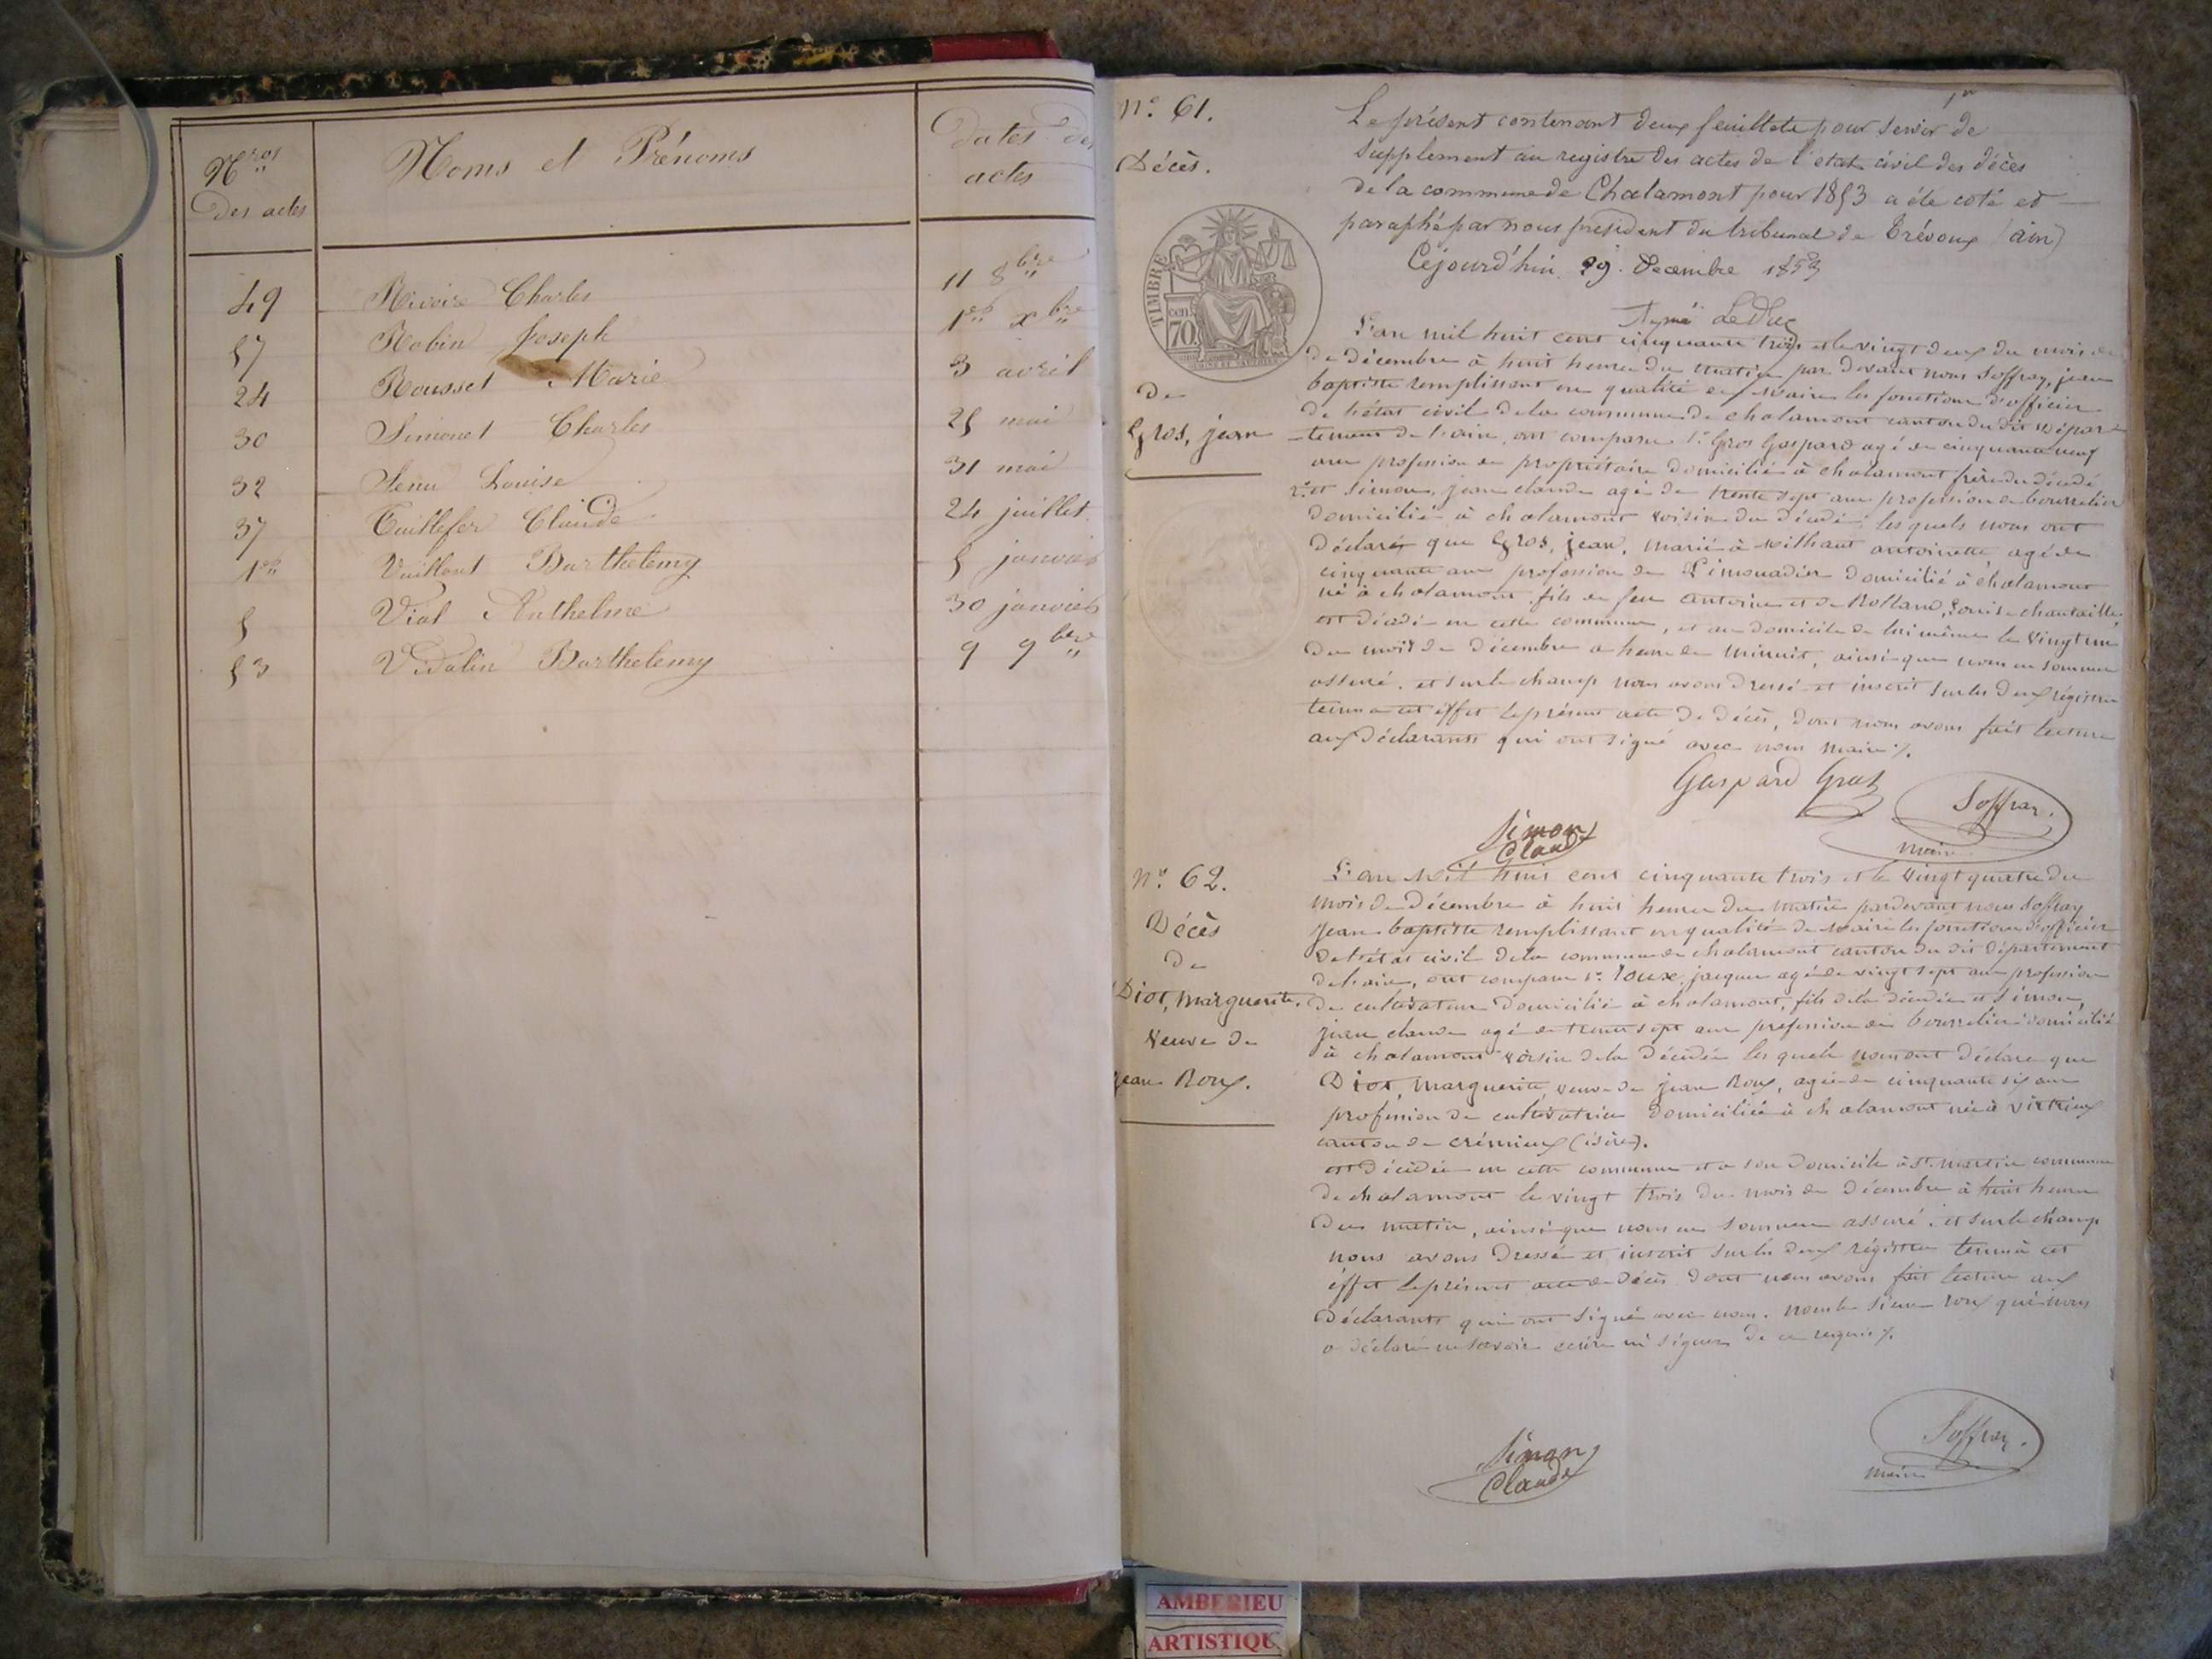 Nros
des actes
Noms et Prénoms
Dates des
actes
49 Rivoire Charles 11 8bre
57 Robin Joseph 1er xbre
24 Rousset Marie 3 avril
30 Simonet Charles 25 mai
32 Louise 31 mai
37 Taillefer Claude 24 juillet
1er Vaillant Barthelemy 5 janvier
5 Vial Anthelme 30 janvier
53 Vidalin Barthelemy 9 9bre
1er
N.o 61.
Décès.
TIMBRE
70
de
Gros, jean
Le présent contenant deux feuillets pour servir de
supplement au registre des actes de l'état civil des décès
de la commune de Chalamont pour 1853 a été coté et
paraphé par nous president du tribunal de Trévoux (ain)
Cejourd'hui 29. Decembre 1853
L'an mil huit cent cinquante trois et le vingt deux du mois de
de décembre à huit heures du matin par devant nous Soffray, jean
baptiste remplissant en qualité de maire les fonctions d'officier
de l'état civil de la commune de chalamont canton du dit dépar-
-tement de l'ain, ont comparu 1.o Gros Gaspard agé de cinquante neuf
ans profession de propriétaire domicilié à chalamont frère du décédé
2.o et Simon, jean claude agé de trente sept ans profession de bourrelier
domicilié à chalamont voisin du décédé, les quels nous ont
déclaré que Gros, jean, marié à Milhant antoinette agé de
cinquante ans profession de Limonadier domicilié à chalamont
né à chalamont fils de feu antoine et de Rolland, Louise chantaille,
est décédé en cette commune, et au domicile de lui même le vingt un
du mois de décembre a heure de minuit, ainsi que nous nous en sommes
assuré. et sur le champ nous avons dressé et inscrit sur les deux régistres
tenus a cet éffet le présent acte de décès, dont nous avons fait lecture
aux déclarants qui ont signé avec nous maire %.
Gaspard Gros
Soffray.
maire
Simon
Claude
N.o 62.
Décès
de
Diot, marguerite,
veuve de
jean Roux.
L'an Mil huit cent cinquante trois et le vingt quatre du
mois de décembre à huit heures du matin pardevant nous Soffray
jean baptiste remplissant en qualité de maire les fonctions d'officier
de l'état civil de la commune de chalamont canton du dit département
de l'ain, ont comparu 1.o roux, jacques agé de vingt sept ans profession
de cultivateur domicilié à chalamont, fils de la décédée et Simon,
jean claude agé de trente sept ans profession de bourrelier domicilié
à chalamont voisin de la décédée les quels nous ont déclaré que
Diot, marguerite, veuve de jean Roux, agée de cinquante six ans
profession de cultivatrice domiciliée à chalamont née à virtrieux
canton de crémieux (isère).
est décédée en cette commune et a son domicile à St. martin commune
de chalamont le vingt trois du mois de décembre à huit heures
du matin, ainsi que nous nous en sommes assuré. et sur le champ
nous avons dressé et inscrit sur les deux régistres tenus à cet
éffet le présent acte de décès dont nous avons fait lecture aux
déclarants qui ont signé avec nous. non le sieur roux qui nous
a déclaré ne savoir écrire ni signer de ce requis %.
Simon
Claude
Soffray.
maire
AMBERIEU
ARTISTIQU